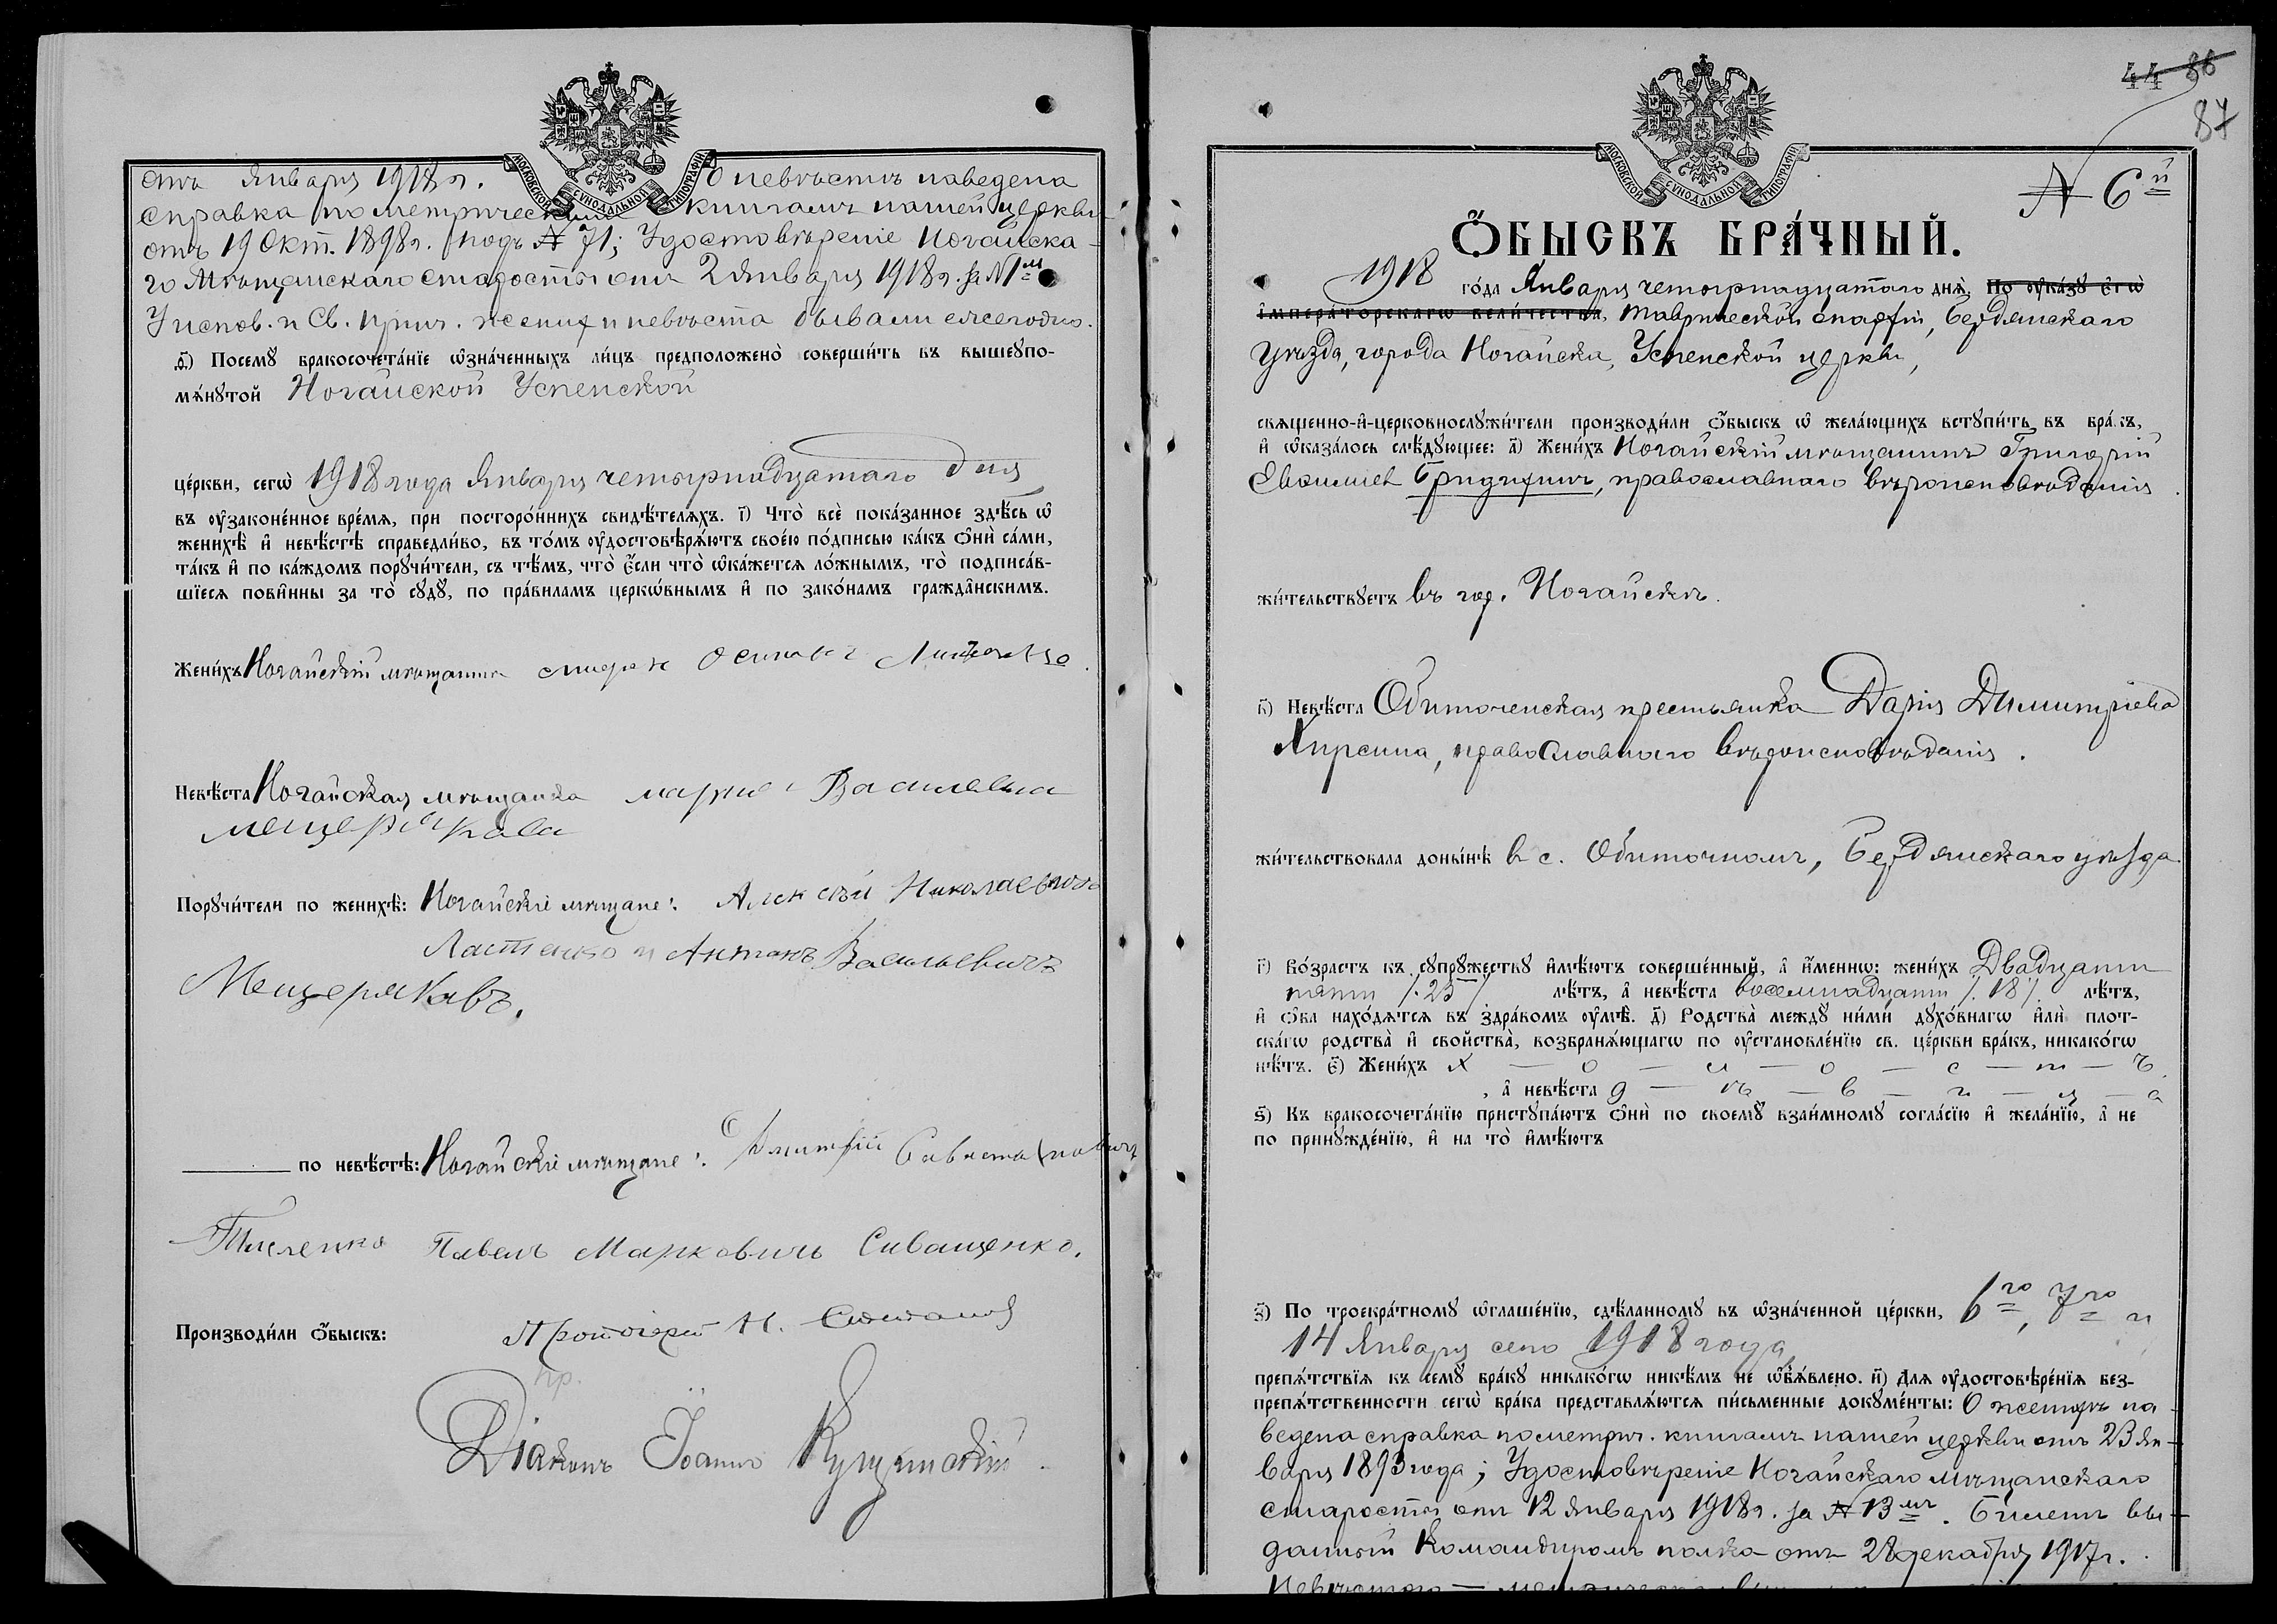 отъ Января 1918 г. О невѣстѣ наведена
справка по метрическимъ книгамъ нашей церкви
отъ 19 Окт. 1898 г. подъ № 71; Удостовѣреніе Ногайска-
го Мѣщанскаго старосты отъ 2 Января 1918 г. за № 1 м
У испов. и Св. Прич. женихъ и невѣста бывали ежегодно.
МОСКОВСКОЙ СѴНОДАЛЬНОЙ ТИПОГРАФІИ
ѳ҃) Посемꙋ̀ бракосочета́нїе ѡ҆зна́ченныхъ ли́цъ предположено̀ соверши́ть въ вышеꙋпо-
мѧ́нꙋтой Ногайской Успенской
це́ркви, сегѡ̀ 1918 года Января четырнадцатаго дня
въ ᲂу҆законе́нное вре́мѧ, при посторо́ннихъ свидѣ́телѧхъ. і҃) Что̀ всѐ пока́занное здѣ́сь ѡ҆
женихѣ̀ и҆ невѣ́стѣ справедли́во, въ то́мъ ᲂу҆достовѣрѧ́ютъ свое́ю по́дписью ка́къ ѻ҆нѝ са́ми,
та́къ и҆ по ка́ждомъ порꙋчи́тели, съ тѣ́мъ, что̀ є҆́сли что̀ ѡ҆ка́жется ло́жнымъ, то̀ подписа́в-
шїесѧ пови́нны за то̀ сꙋдꙋ̀, по пра́виламъ церкѡ́внымъ и҆ по зако́намъ гражда́нскимъ.
Жени́хъ Ногайскій мѣщанинъ
Невѣ́ста Ногайская мѣщанка Василевна
мещерякава
Порꙋчи́тели по женихѣ̀: Ногайскіе мѣщане: Алексѣй Николаевичъ
Ластенко и Антонъ Васильевичъ
Мещеряковъ.
по невѣ́стѣ: Ногайскіе мѣщане: Дмитрій
Павелъ Марковичъ Сиващенко.
Производи́ли ѻ҆́быскъ: Протоіерей Н.
пр.
Діаконъ Іоаннъ
44 86
87
МОСКОВСКОЙ СѴНОДАЛЬНОЙ ТИПОГРАФІИ
№ 6 й
Ѻ҆́БЫСКЪ БРА́ЧНЫЙ.
1918 го́да Января четырнадцатаго днѧ̀. По ᲂу҆ка́зꙋ є҆гѡ̀
і҆мпера́торскагѡ вели́чества, Таврической епархіи, Бердянскаго
уѣзда, города Ногайска, Успенской церкви,
свѧще́нно-и҆-церковнослꙋжи́тели производи́ли ѻ҆́быскъ ѡ҆ жела́ющихъ встꙋпи́ть въ бра́къ,
и҆ ѡ҆каза́лось слѣ́дꙋющее: а҃) Жени́хъ Ногайскій мѣщанинъ Григорій
Евфиміев Бридихинъ, православнаго вѣроисповѣданія.
жи́тельствꙋетъ въ гор. Ногайскѣ.
в҃) Невѣ́ста Обиточенская крестьянка Дарія Димитріева
Кирсина, православнаго вѣроисповѣданія.
жи́тельствовала доны́нѣ в с. Обиточномъ, Бердянскаго уѣзда.
г҃) Во́зрастъ къ сꙋпрꙋ́жествꙋ и҆мѣ́ютъ соверше́нный, а҆ и҆́меннѡ: жени́хъ Двадцати
пяти /.25/ лѣ́тъ, а҆ невѣ́ста восемнадцати /.18/. лѣ́тъ,
и҆ ѻ҆́ба нахо́дѧтсѧ въ здра́вомъ ᲂу҆мѣ̀. д҃) Родства̀ междꙋ ни́ми дꙋхо́внагѡ и҆лѝ плот-
ска́гѡ родства̀ и҆ сво́йства̀, возбранѧ́ющагѡ по ᲂу҆становле́нїю св. це́ркви бра́къ, никако́гѡ
нѣ́тъ. є҃) Жени́хъ х — о — л — о — с — т — ъ.
, а҆ невѣ́ста д — ѣ — в — и — ц — а
ѕ҃) Къ бракосочета́нїю пристꙋпа́ютъ ѻ҆нѝ по своемꙋ̀ взаи́мномꙋ согла́сїю и҆ жела́нїю, а҆ не
по принꙋжде́нїю, и҆ на то̀ и҆мѣ́ютъ
з҃) По троекра́тномꙋ ѡ҆глаше́нїю, сдѣ́ланномꙋ въ ѡ҆зна́ченной це́ркви, 6 го, 7 го и
14 Января сего 1918 года
препѧ́тствїѧ къ семꙋ̀ бра́кꙋ никако́гѡ никѣ́мъ не ѡ҆б̾ѧ́влено. и҃) Для ᲂу҆достовѣре́нїѧ без-
препѧ́тственности сегѡ̀ бра́ка представлѧ́ютсѧ пи́сьменные докꙋме́нты: О женихѣ на-
ведена справка по метрич. книгамъ нашей церкви отъ 23 Ян-
варя 1893 года; Удостовѣреніе Ногайскаго мѣщанскаго
старосты отъ 12 Января 1918 г. за № 13 мъ. Билетъ вы-
данный Командиромъ полка отъ 28 декабря 1917 г.